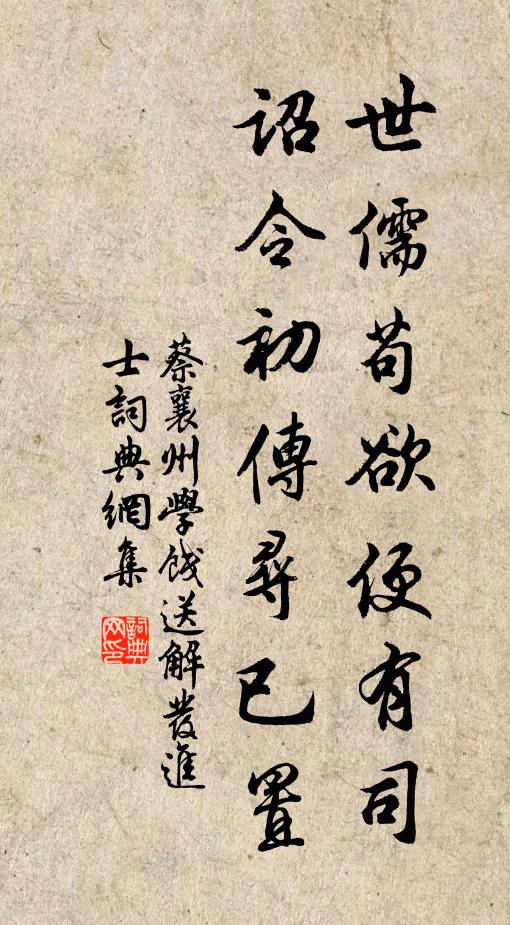 世儒苟欲便有司
詔令初傳尋已置
蔡襄州學餞送解發進
士詞典網集
詞典网印